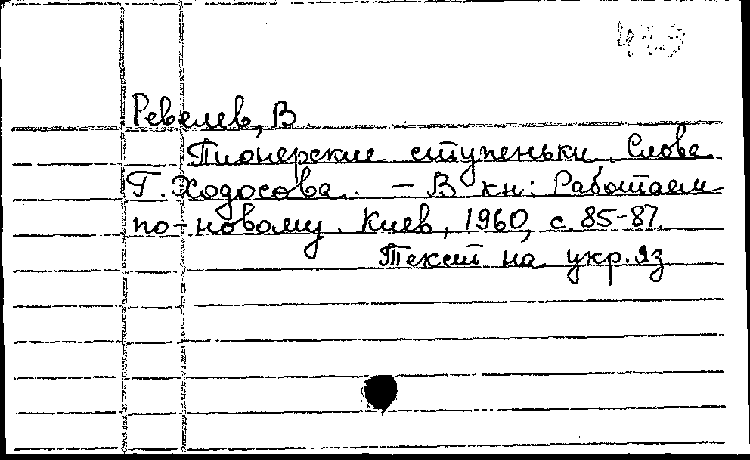 Ревелев, В.
Пионерские ступеньки. Слова
Г. Ходосова. - В кн: Работаем
по-новому. Киев, 1960, с. 85-87.
Текст на укр. яз